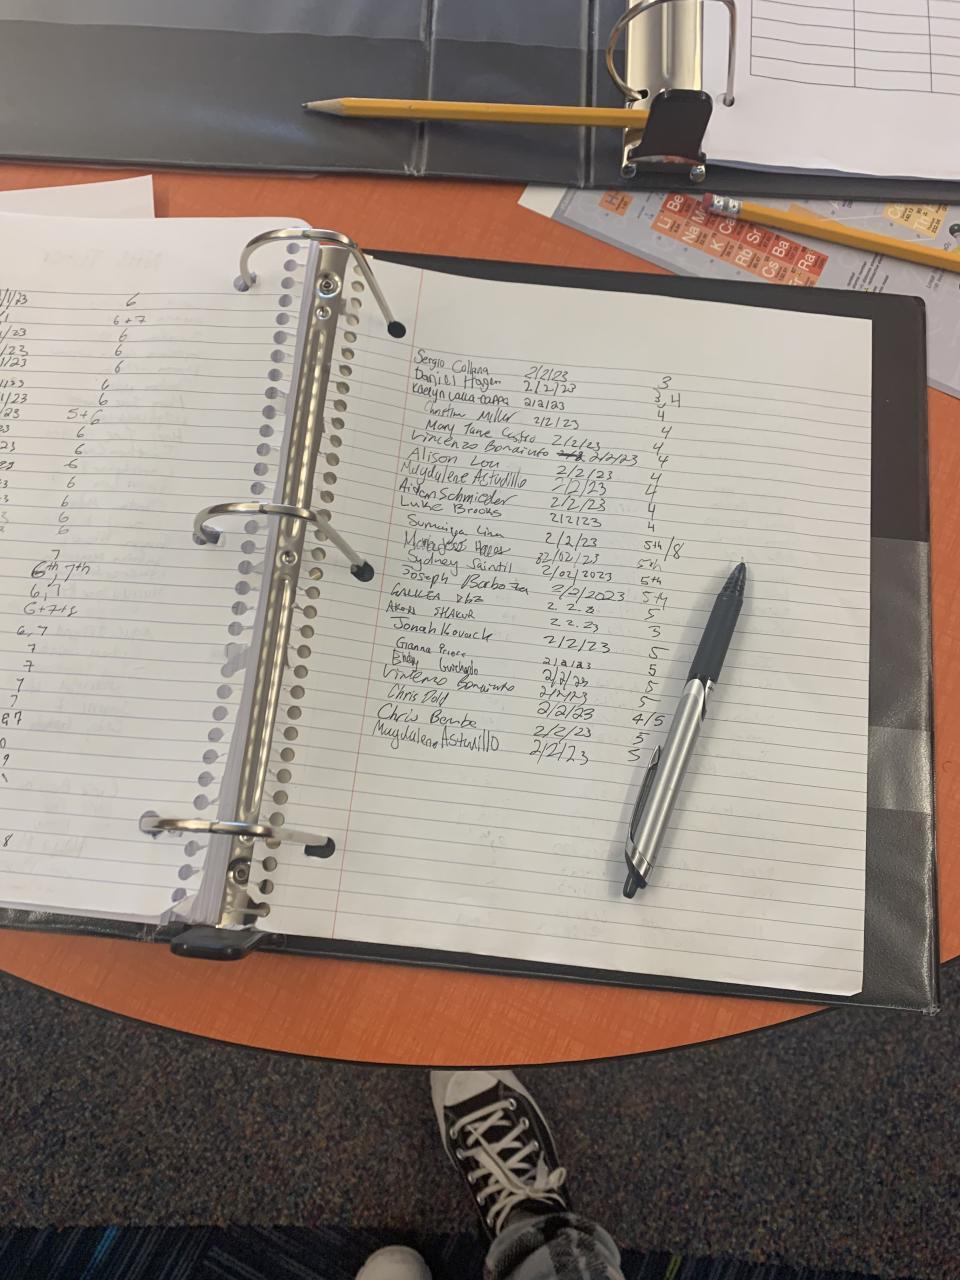 1/23 6
6+7
/23 6
/23 6
1/23 6
6
1/23 6
/23 5+6
3 6
23 6
6
3 6
6
3 6
6
7
6th 7th
6,7
6+7+8
6, 7
7
7
7
7
&7
9
8
Sergio Collana 2/2/23 3
Daniel Hagen 2/2/23 3,4
Kaelyn 2/2/23 4
Christina Miller 2/2/23 4
Mary Jane Castro 2/2/23 4
Vincenzo Bonaiuto 2/2/23 4
Alison Lou 2/2/23 4
Magdalene Astudillo 2/2/23 4
Aidan Schmieder 2/2/23 4
Luke Brooks 2/2/23 4
Sumaiya 2/2/23 5th/8
02/02/23 5th
Sydney Saintil 2/02/2023 5th
Joseph Barboza 2/2/2023 5+4
2.2.23 5
2.2.23 3
Jonah Kovack 2/2/23 5
Gianna Prince 2/2/23 5
2/2/23 5
Vincenzo Bonaiuto 2/2/23 5
Chris Dold 2/2/23 4/5
Chris Bembe 2/2/23 5
Magdalene Astudillo 2/2/23 5
H
Li Be
Na M
K Ca
Rb Sr
Cs Ba
Fr Ra